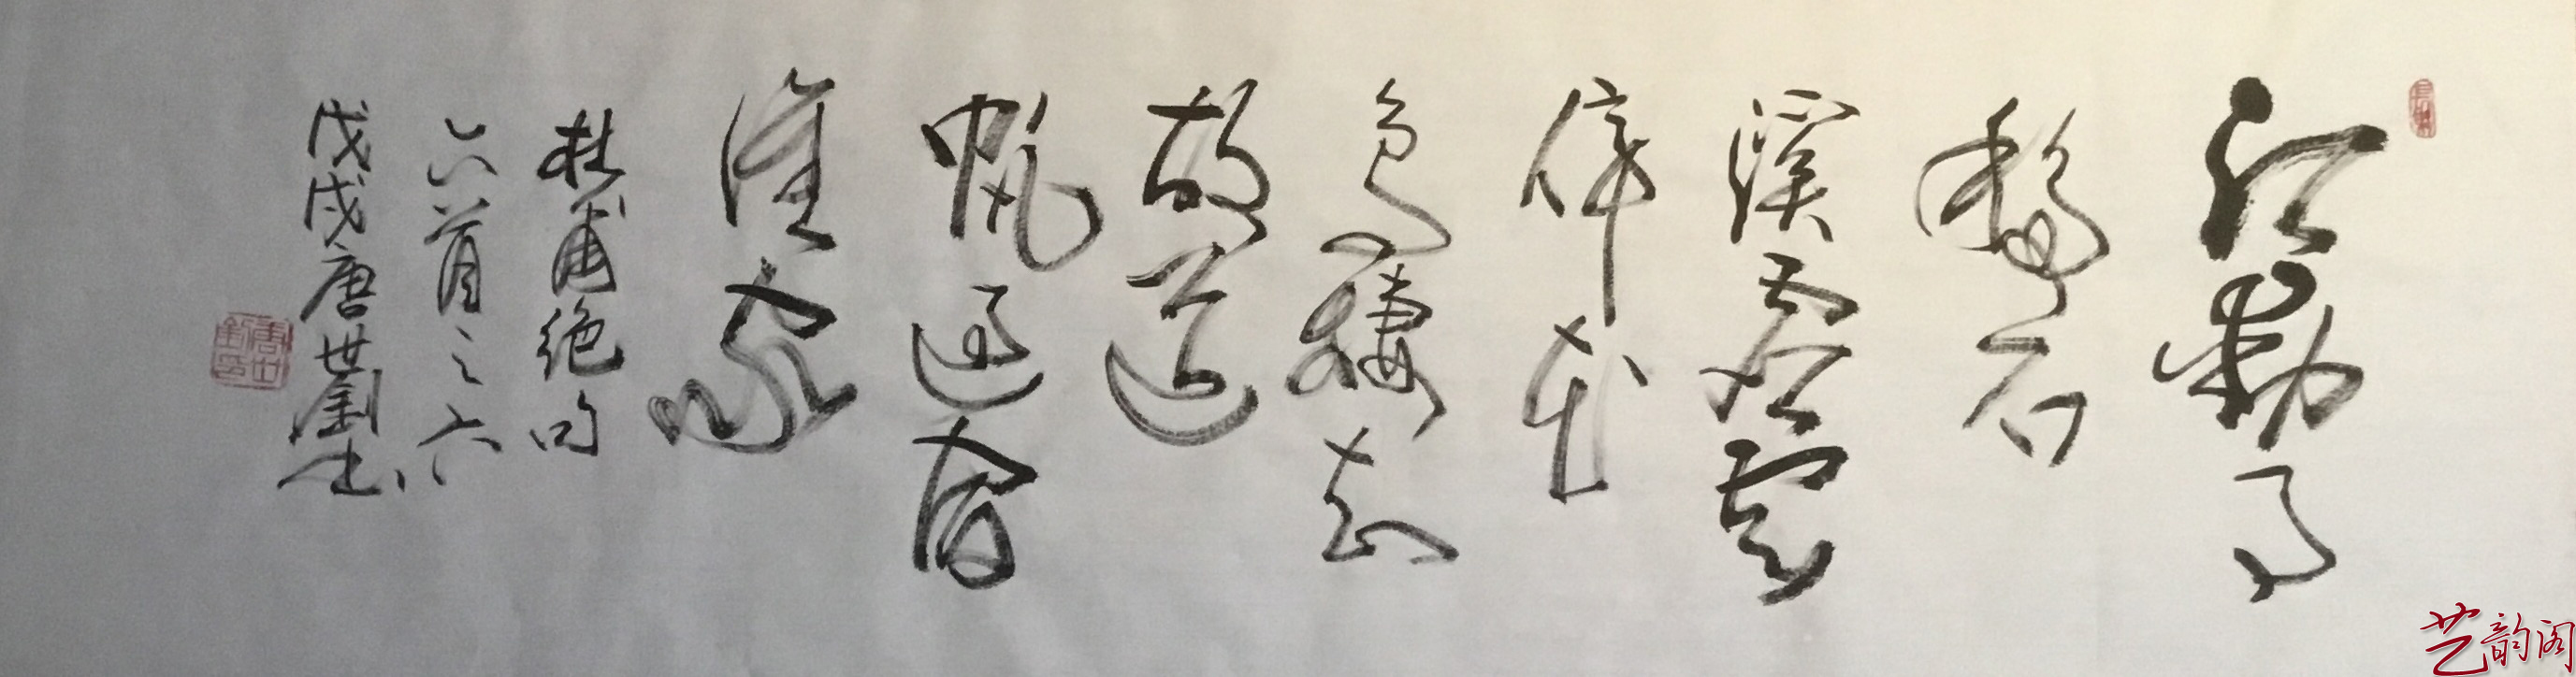 江動月
移石
溪虚雲
傍花
鸟棲知
故道
帆過宿
誰家
杜甫绝句
六首之六
戊戌唐世釗书
艺韵阁